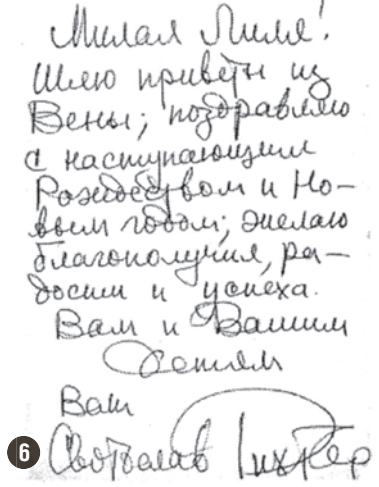 Милая Лиля!
Шлю приветы из
Вены; поздравляю
с наступающим
Рождеством и Но-
вым годом; желаю
благополучия, ра-
дости и успеха.
Вам и Вашим
детям
Ваш
6 Святослав Рихтер